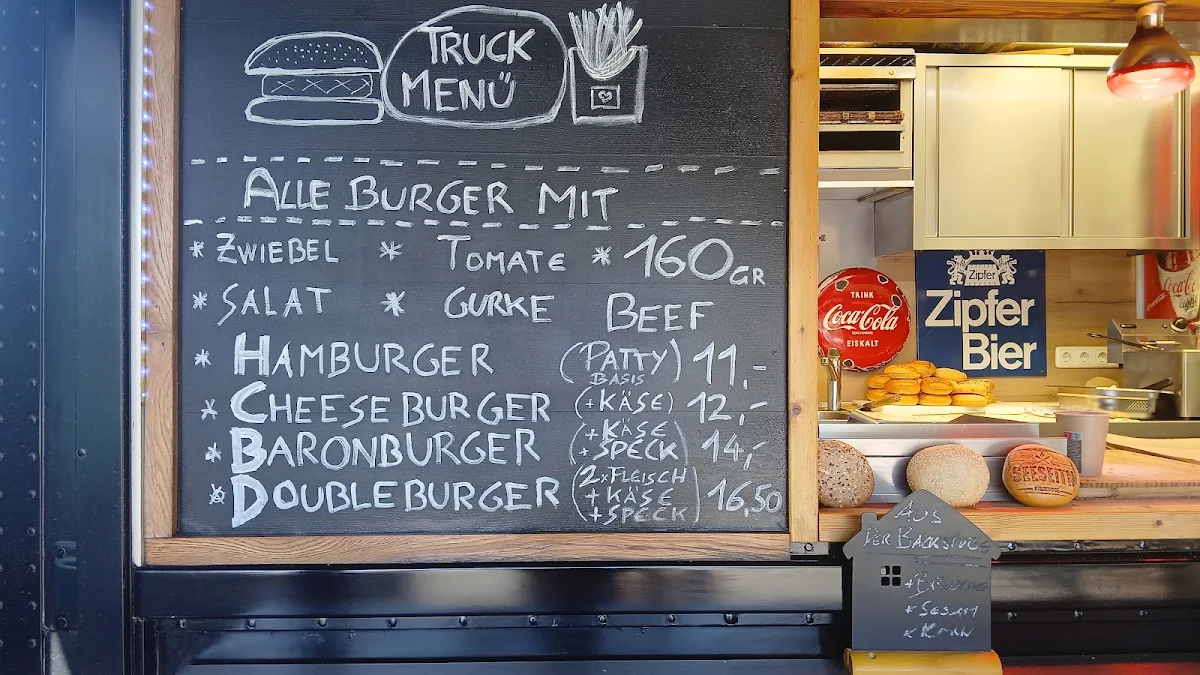 TRUCK
MENÜ
ALLE BURGER MIT
* ZWIEBEL * TOMATE * 160GR
* SALAT * GURKE BEEF
* HAMBURGER (PATTY BASIS) 11,-
* CHEESEBURGER (+KÄSE) 12,-
* BARONBURGER (+KÄSE +SPECK) 14,-
* DOUBLEBURGER (2xFLEISCH +KÄSE +SPECK) 16,50
TRINK
Coca-Cola
EISKALT
Zipfer
Zipfer
Bier
Coca-Cola
light
SEESEITN
AUS
DER BACKSTUBE
+ SESAM